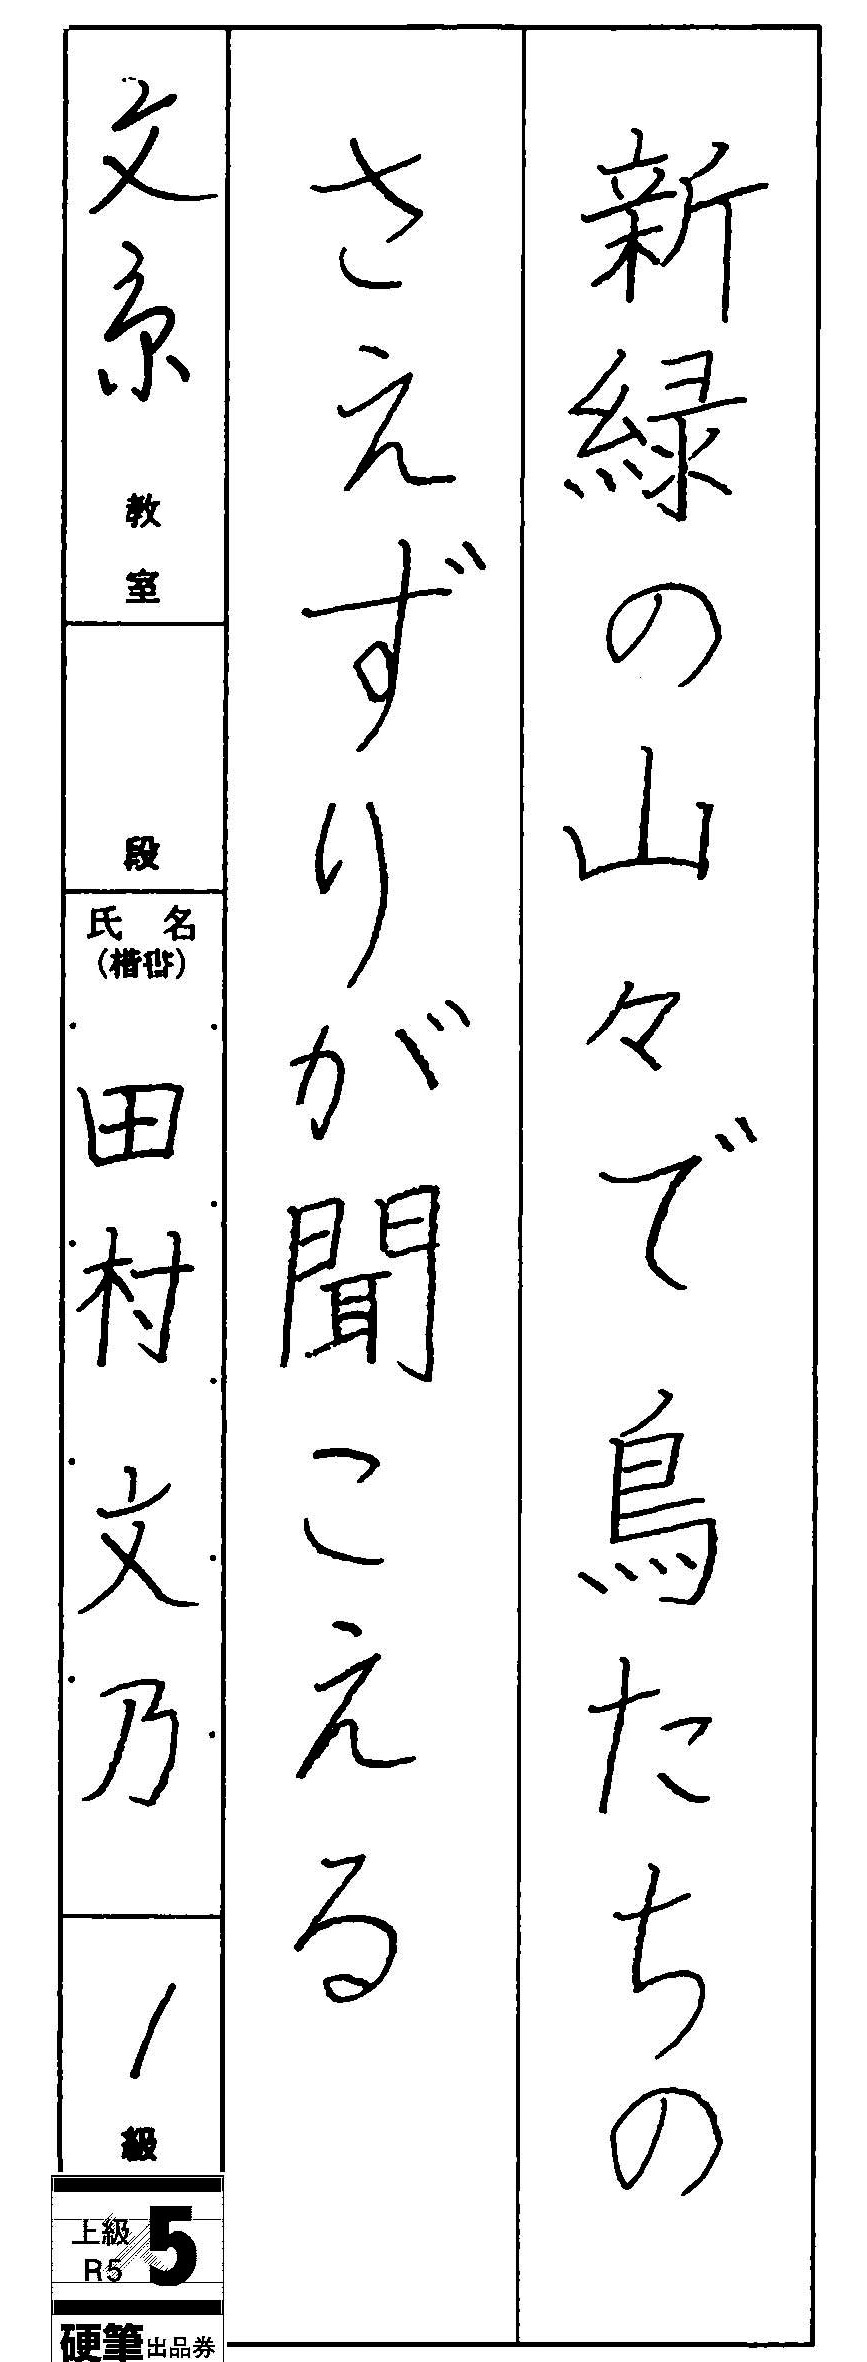 新緑の山々で鳥たちの
さえずりが聞こえる
文京教室
段
氏名
(楷書)
田村文乃
1級
上級
R5
5
硬筆出品券